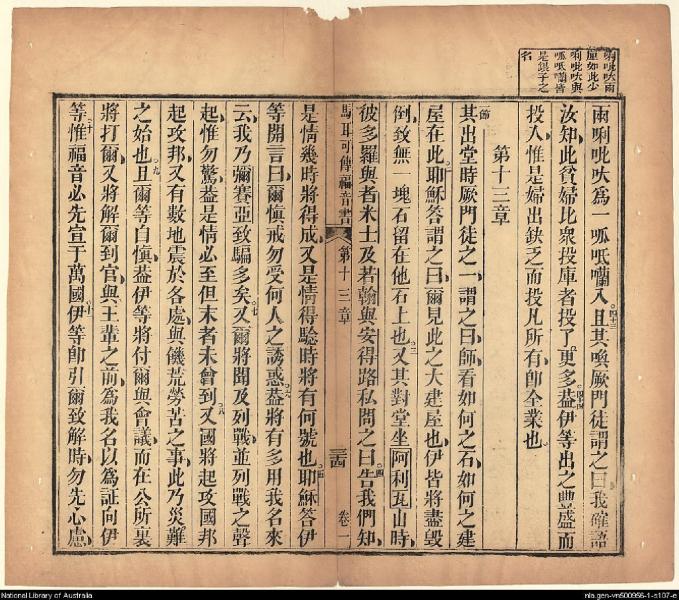 唎吡吠兩
厘如此少
唎吡吠與
呱呧嘣皆
是銀子之
名
兩唎吡吠為一呱呧嘣入四十三且其喚厥門徒謂之曰我確語
汝知此貧婦比衆投庫者投了更多四十四蓋伊等出之豐盛而
投入惟是婦出缺乏而投凡所有卽全業也
第十三章
節其出堂時厥門徒之一謂之曰師看如何之石如何之建
屋在此二耶穌答謂之曰爾見此之大建屋也伊皆將盡毀
倒致無一塊石留在他石上也三又其對堂坐阿利瓦山時
彼多羅與者米士及若翰與安得路私問之曰四告我們知
馬耳可傳福音書 第十三章 三十四 卷一
是情幾時將得成又是情得驗時將有何號也五耶穌答伊
等開言曰爾慎戒勿受何人之誘惑六蓋將有多用我名來
云我乃彌賽亞致騙多矣七又爾將聞及列戰並列戰之聲
起惟勿驚蓋是情必至但末者未曾到八又國將起攻國邦
起攻邦又有數地震於各處與饑荒勞苦之事此乃災難
之始也九且爾等自慎蓋伊等將付爾與會議而在公所裏
將打爾又將解爾到官與王輩之前為我名以為証向伊
等十惟福音必先宣于萬國十一伊等卽引爾致解時勿先心慮
National Library of Australia
nla.gen-vn500956-1-s107-e